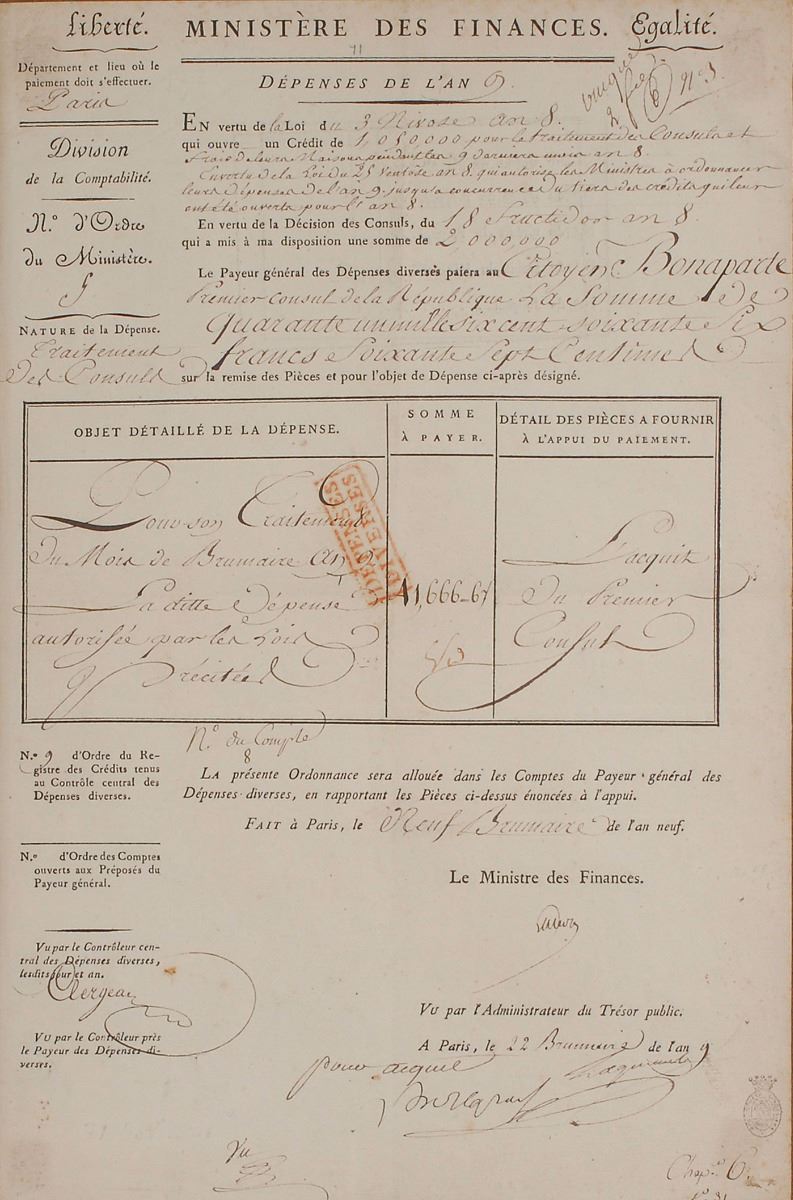 Liberté. MINISTÈRE DES FINANCES. Egalité.
11
Département et lieu où le
paiement doit s'effectuer.
Paris
Division
de la Comptabilité.
N.º d'Ordre
du Ministère.
5
NATURE de la Dépense.
Traitement
des Consuls
DÉPENSES DE L'AN 9.
EN vertu de la Loi du 3 Nivose an 8.
qui ouvre un Crédit de 1,050,000 pour le traitement des Consuls et
frais de leurs Maisons pendant les 9 derniers mois an 8.
En vertu de la Loi du 25 Ventose an 8. qui autorise les Ministres à ordonnancer
leurs dépenses de l'an 9. jusqu'à concurrence du tiers des crédits qui leur
ont été ouverts pour l'an 8.
En vertu de la Décision des Consuls, du 18 fructidor an 8.
qui a mis à ma disposition une somme de 2000,000
Le Payeur général des Dépenses diverses paiera au Citoyen Bonaparte
Premier Consul de la République La Somme de
Quarante un mille six cent soixante six
francs soixante sept Centimes
sur la remise des Pièces et pour l'objet de Dépense ci-après désigné.
OBJET DÉTAILLÉ DE LA DÉPENSE.
SOMME
À PAYER.
DÉTAIL DES PIÈCES A FOURNIR
À L'APPUI DU PAIEMENT.
Pour son Traitement
du Mois de Brumaire An 9
La ditte Dépense
autorisée par les Lois
Précitées
DÉPENSES
DIVERSES
41,666-67
L'acquit
du Premier
Consul
N.º 9 d'Ordre du Re-
gistre des Crédits tenus
au Contrôle central des
Dépenses diverses.
N.º du Compte
8
LA présente Ordonnance sera allouée dans les Comptes du Payeur général des
Dépenses diverses, en rapportant les Pièces ci-dessus énoncées à l'appui.
FAIT à Paris, le Neuf Brumaire de l'an neuf.
N.º d'Ordre des Comptes
ouverts aux Préposés du
Payeur général.
Le Ministre des Finances.
Vu par le Contrôleur cen-
tral des Dépenses diverses,
lesdits jour et an.
Clergeau
VU par l'Administrateur du Trésor public.
A Paris, le 22 Brumaire de l'an 9
VU par le Contrôleur près
le Payeur des Dépenses di-
verses.
pour acquit
Vu
Chap. 6.